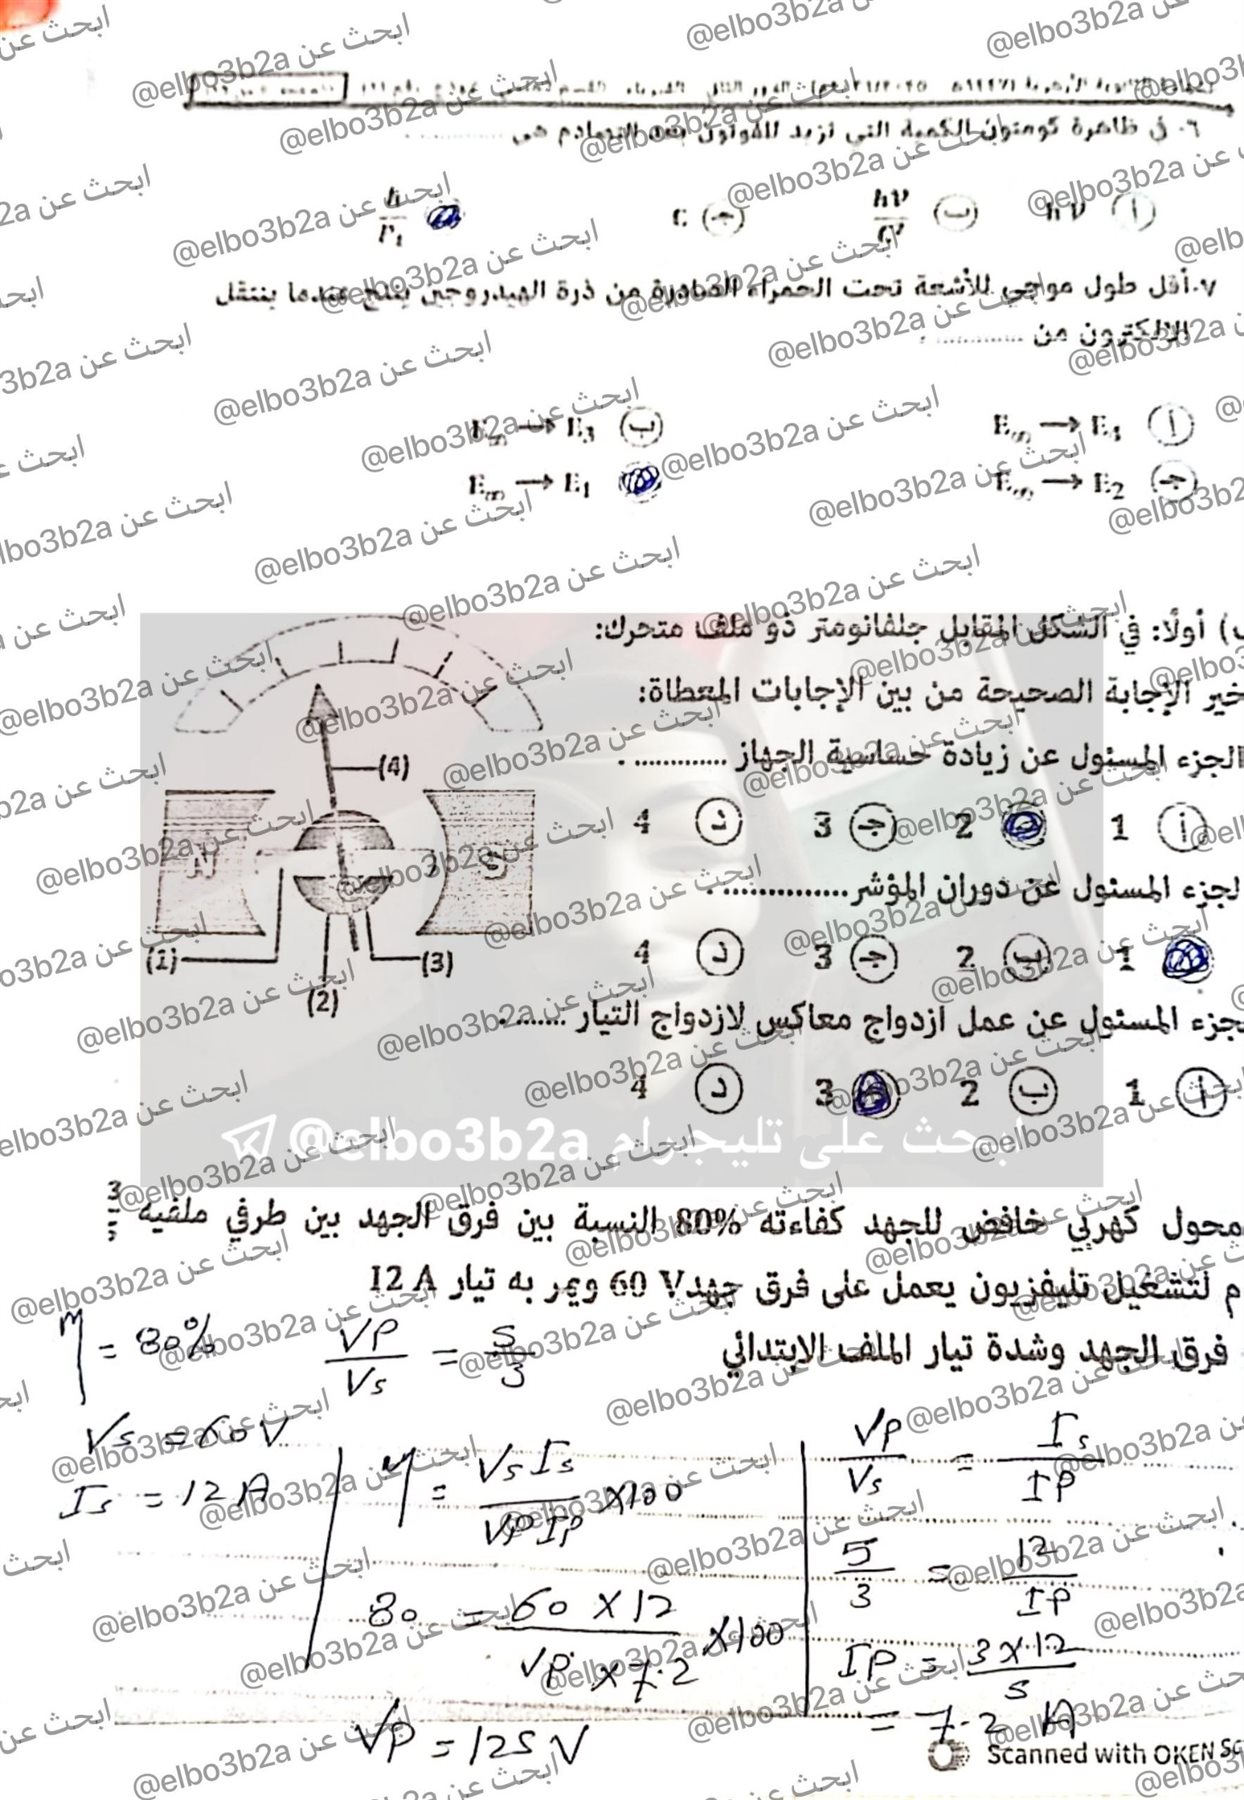 ٦. في ظاهرة كومتون الكمية التي تزيد للفوتون بعد التصادم هي ............
أ hν ب hν/c² ج c h/P
٧. أقل طول موجي للأشعة تحت الحمراء الصادرة من ذرة الهيدروجين ينتج عندما ينتقل
الإلكترون من ............
أ E∞ → E4 ب E∞ → E3
ج E∞ → E2 E∞ → E1
ب) أولًا: في الشكل المقابل جلفانومتر ذو ملف متحرك:
خير الإجابة الصحيحة من بين الإجابات المعطاة:
الجزء المسئول عن زيادة حساسية الجهاز ............
أ 1 2 ج 3 د 4
لجزء المسئول عن دوران المؤشر ...............
1 ب 2 ج 3 د 4
جزء المسئول عن عمل ازدواج معاكس لازدواج التيار ........
أ 1 ب 2 3 د 4
(4)
N S
(1) (3)
(2)
ابحث على تليجرام @elbo3b2a
محول كهربي خافض للجهد كفاءته 80% النسبة بين فرق الجهد بين طرفي ملفيه 3/5
م لتشغيل تليفزيون يعمل على فرق جهد 60 V ويمر به تيار 12 A
فرق الجهد وشدة تيار الملف الابتدائي
η = 80% VP/Vs = 5/3
Vs = 60 V
Is = 12 A
η = Vs Is / VP IP × 100
80 = 60 × 12 / VP × 7.2 × 100
VP = 125 V
VP/Vs = Is/IP
5/3 = 12/IP
IP = 3 × 12 / 5
= 7.2 A
Scanned with OKEN
ابحث عن @elbo3b2a